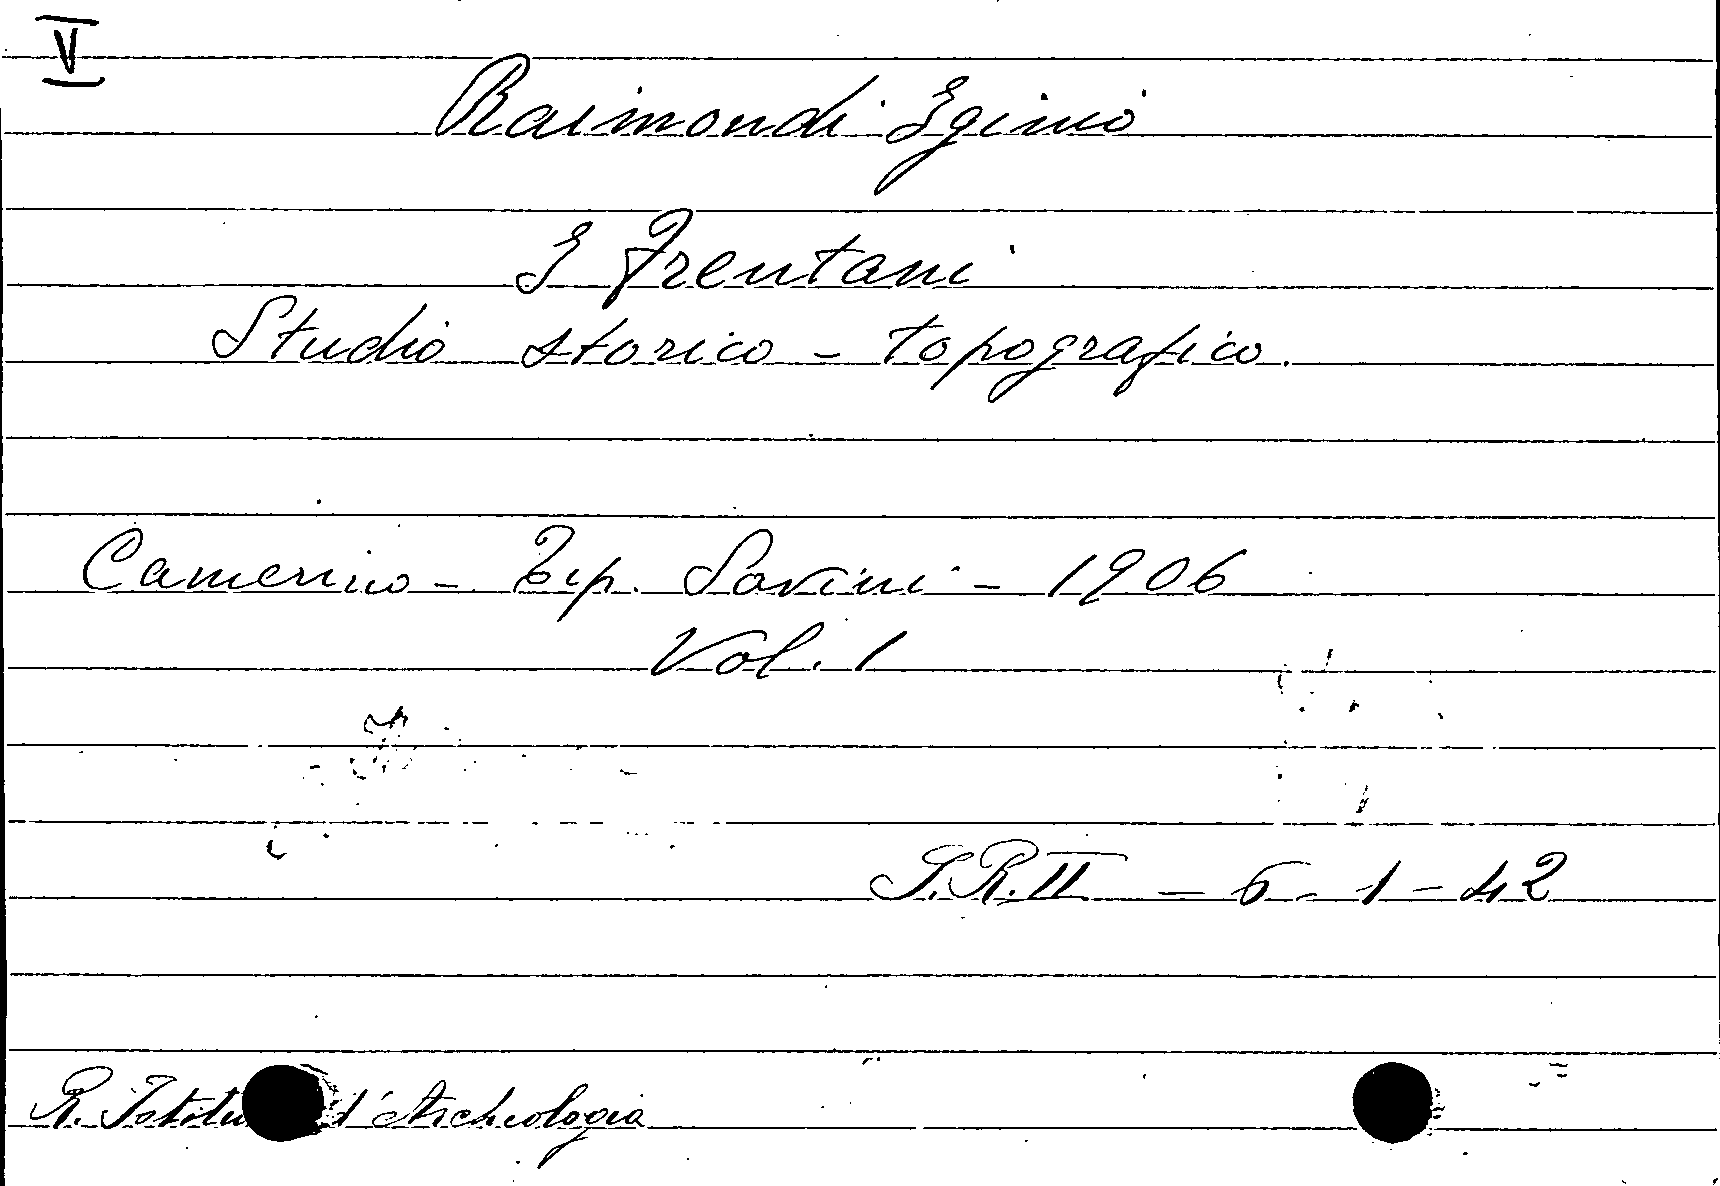 V
Raimondi Iginio
I Frentani
Studio storico - topografico.
Camerino - Tip. Savini - 1906
Vol. 1
S.R. II - 6 - 1 - 42
R. d'Archeologia